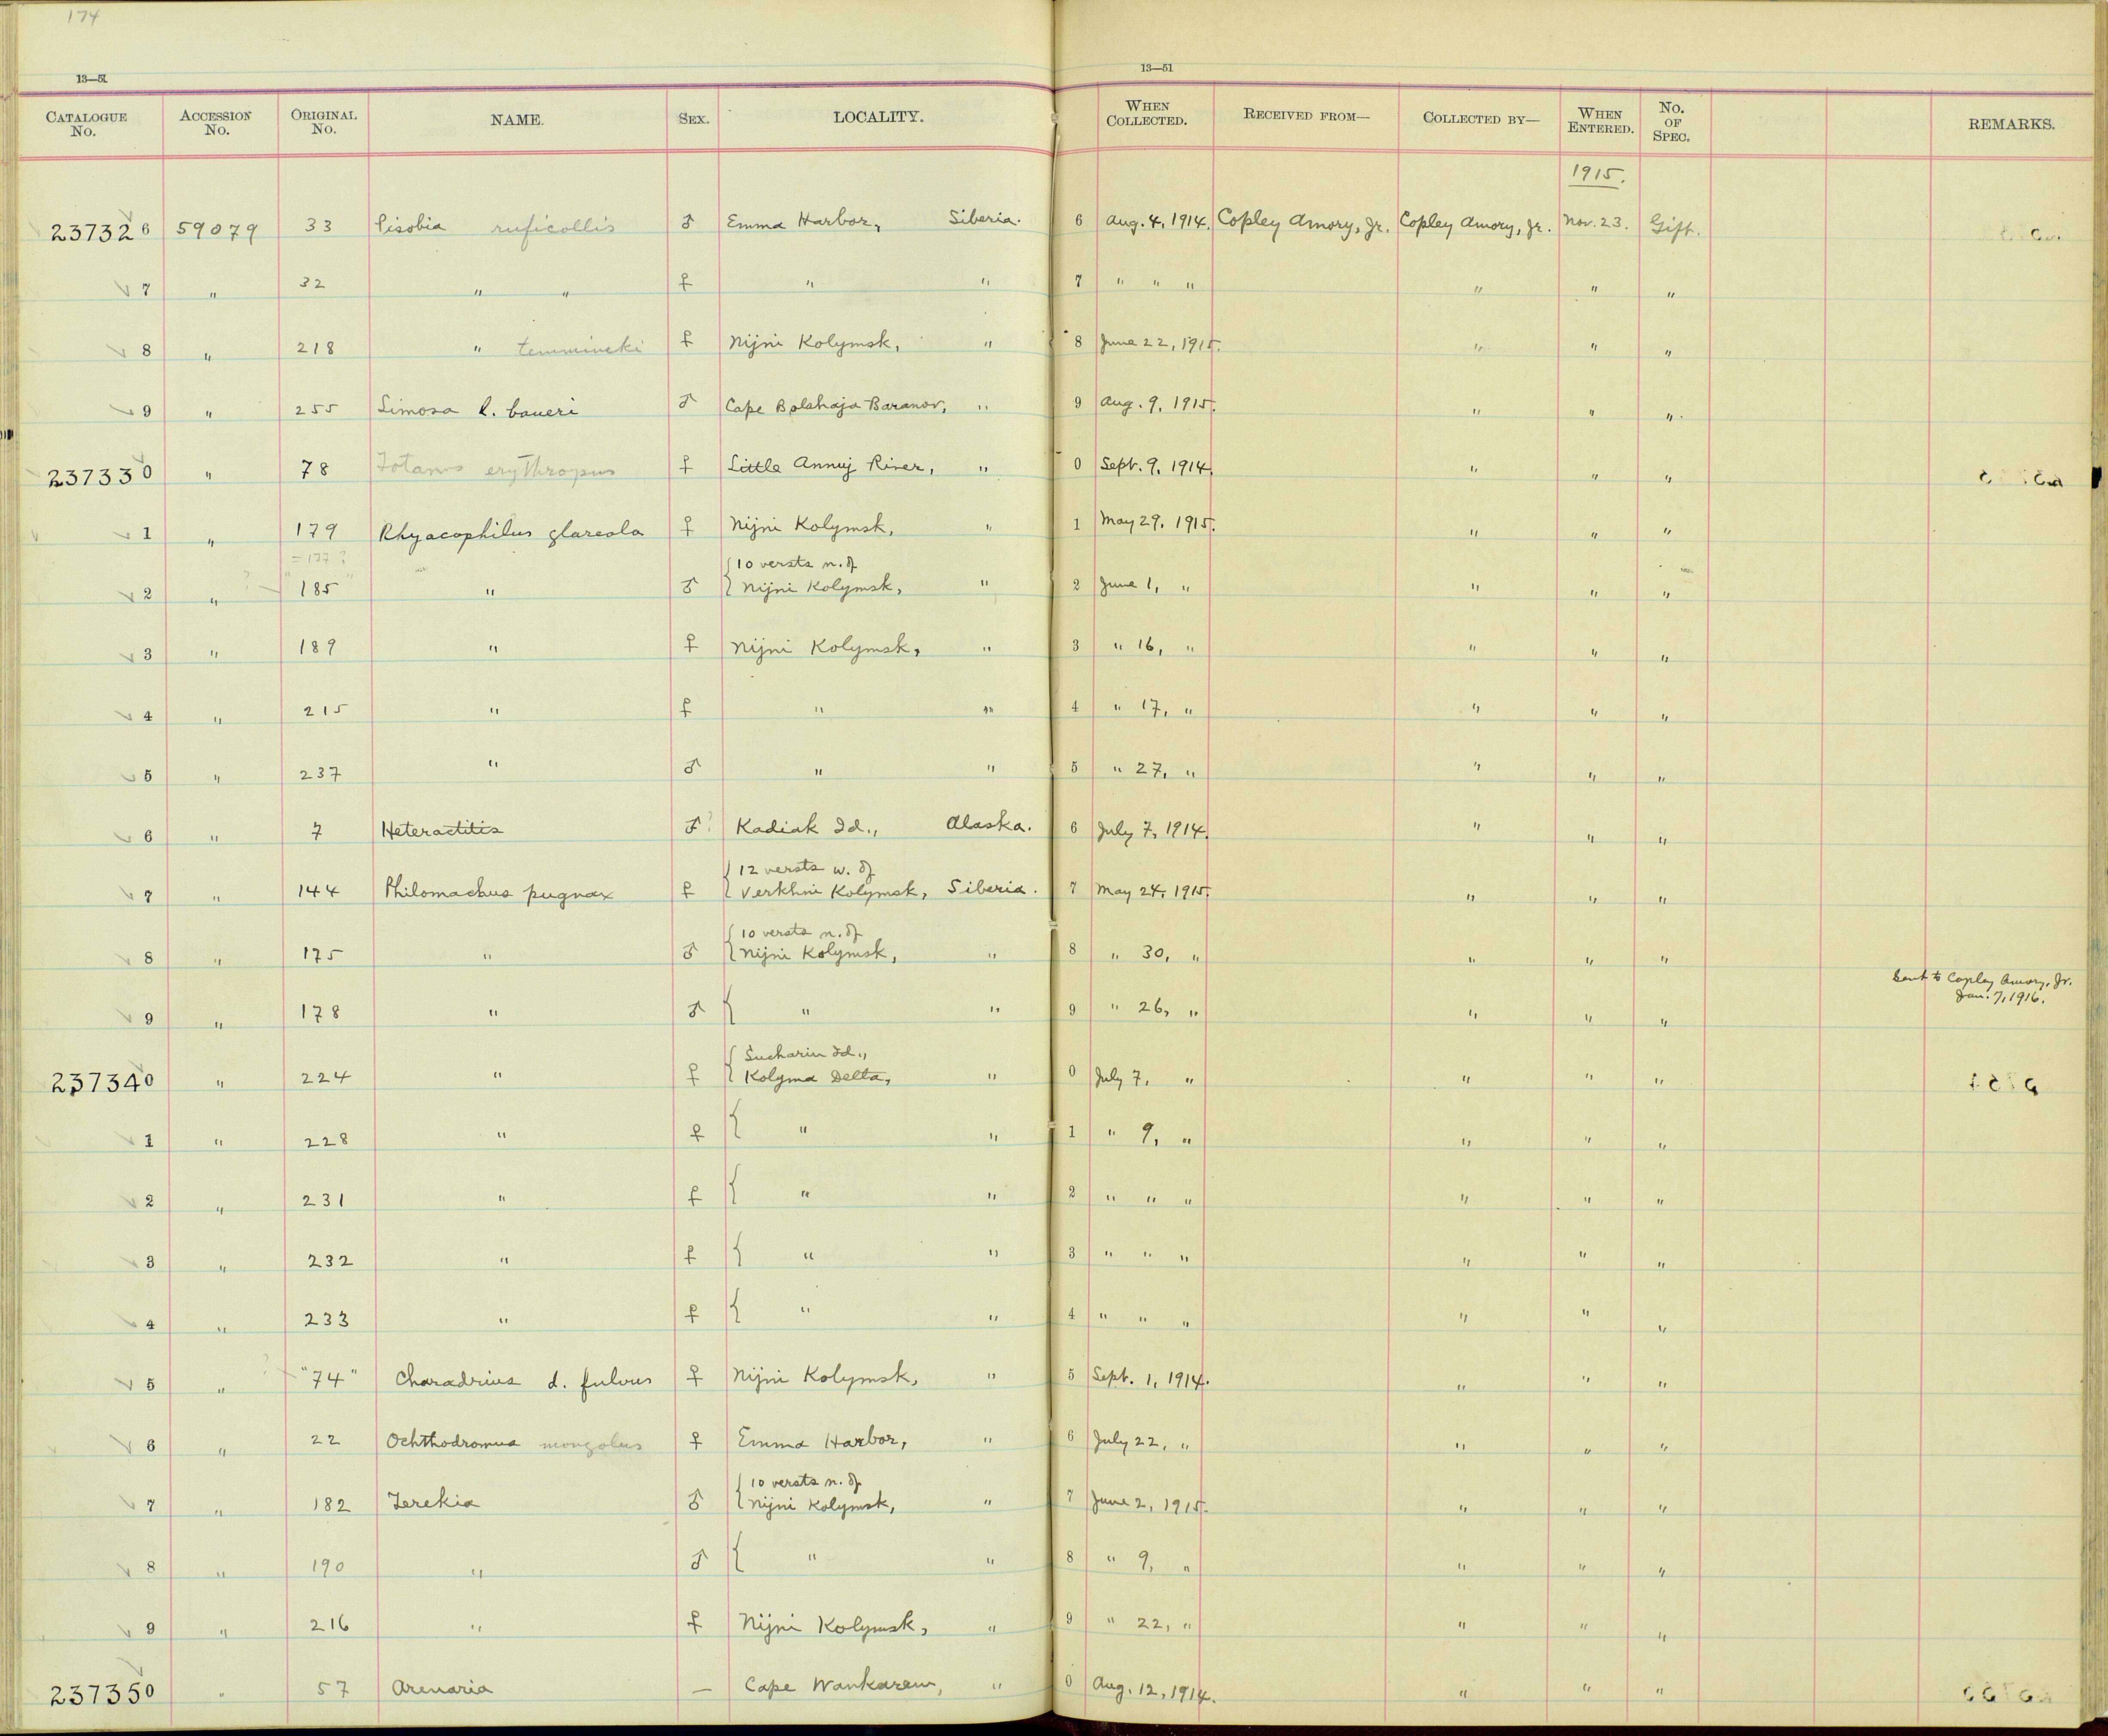 174
13—51
13—51
CATALOGUE No. ACCESSION No. ORIGINAL No. NAME. SEX. LOCALITY. WHEN COLLECTED. RECEIVED FROM— COLLECTED BY— WHEN ENTERED. No. OF SPEC. REMARKS.
1915.
237326 59079 33 Pisobia ruficollis ♂ Emma Harbor, Siberia. 6 Aug. 4, 1914. Copley Amory, Jr. Copley Amory, Jr. Nov. 23. Gift.
7 " 32 " " ♀ " " 7 " " " " " "
8 " 218 " temmincki ♀ Nijni Kolymsk, " 8 June 22, 1915. " " "
9 " 255 Limosa l. baueri ♂ Cape Bolshaja Baranov, " 9 Aug. 9, 1915. " " "
237330 " 78 Totanus erythropus ♀ Little Annuj River, " 0 Sept. 9, 1914. " " "
1 " 179 Rhyacophilus glareola ♀ Nijni Kolymsk, " 1 May 29, 1915. " " "
= 177 ? { 10 versts n. of
2 " ? — "185" " ♂ Nijni Kolymsk, " 2 June 1, " " " "
3 " 189 " ♀ Nijni Kolymsk, " 3 " 16, " " " "
4 " 215 " ♀ " " 4 " 17, " " " "
5 " 237 " ♂ " " 5 " 27, " " " "
6 " 7 Heteractitis ♂? Kadiak Id., Alaska. 6 July 7, 1914. " " "
{ 12 versts w. of
7 " 144 Philomachus pugnax ♀ Verkhni Kolymsk, Siberia. 7 May 24, 1915. " " "
{ 10 versts n. of
8 " 175 " ♂ Nijni Kolymsk, " 8 " 30, " " " "
Sent to Copley Amory, Jr.
Jan. 7, 1916.
9 " 178 " ♂ { " " 9 " 26, " " " "
{ Sucharin Id.,
237340 " 224 " ♀ Kolyma Delta, " 0 July 7, " " " "
1 " 228 " ♀ { " " 1 " 9, " " " "
2 " 231 " ♀ { " " 2 " " " " " "
3 " 232 " ♀ { " " 3 " " " " " "
4 " 233 " ♀ { " " 4 " " " " " "
5 " ? — "74" Charadrius d. fulvus ♀ Nijni Kolymsk, " 5 Sept. 1, 1914. " " "
6 " 22 Ochthodromus mongolus ♀ Emma Harbor, " 6 July 22, " " " "
{ 10 versts n. of
7 " 182 Terekia ♂ Nijni Kolymsk, " 7 June 2, 1915. " " "
8 " 190 " ♂ { " " 8 " 9, " " " "
9 " 216 " ♀ Nijni Kolymsk, " 9 " 22, " " " "
237350 " 57 Arenaria — Cape Wankarem, " 0 Aug. 12, 1914. " " "